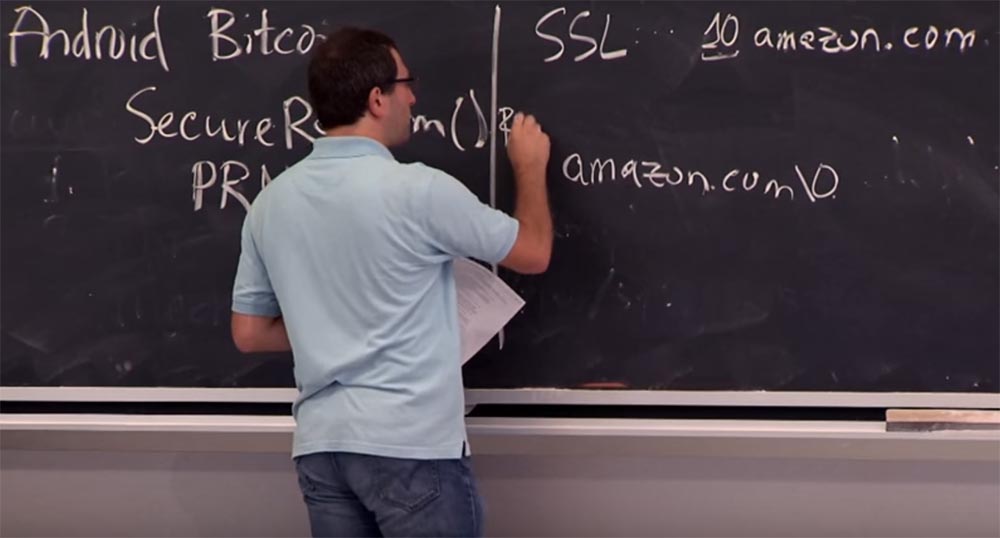 Android
SecureR m()
PR
SSL ... 10 amazon.com
amazon.com\0